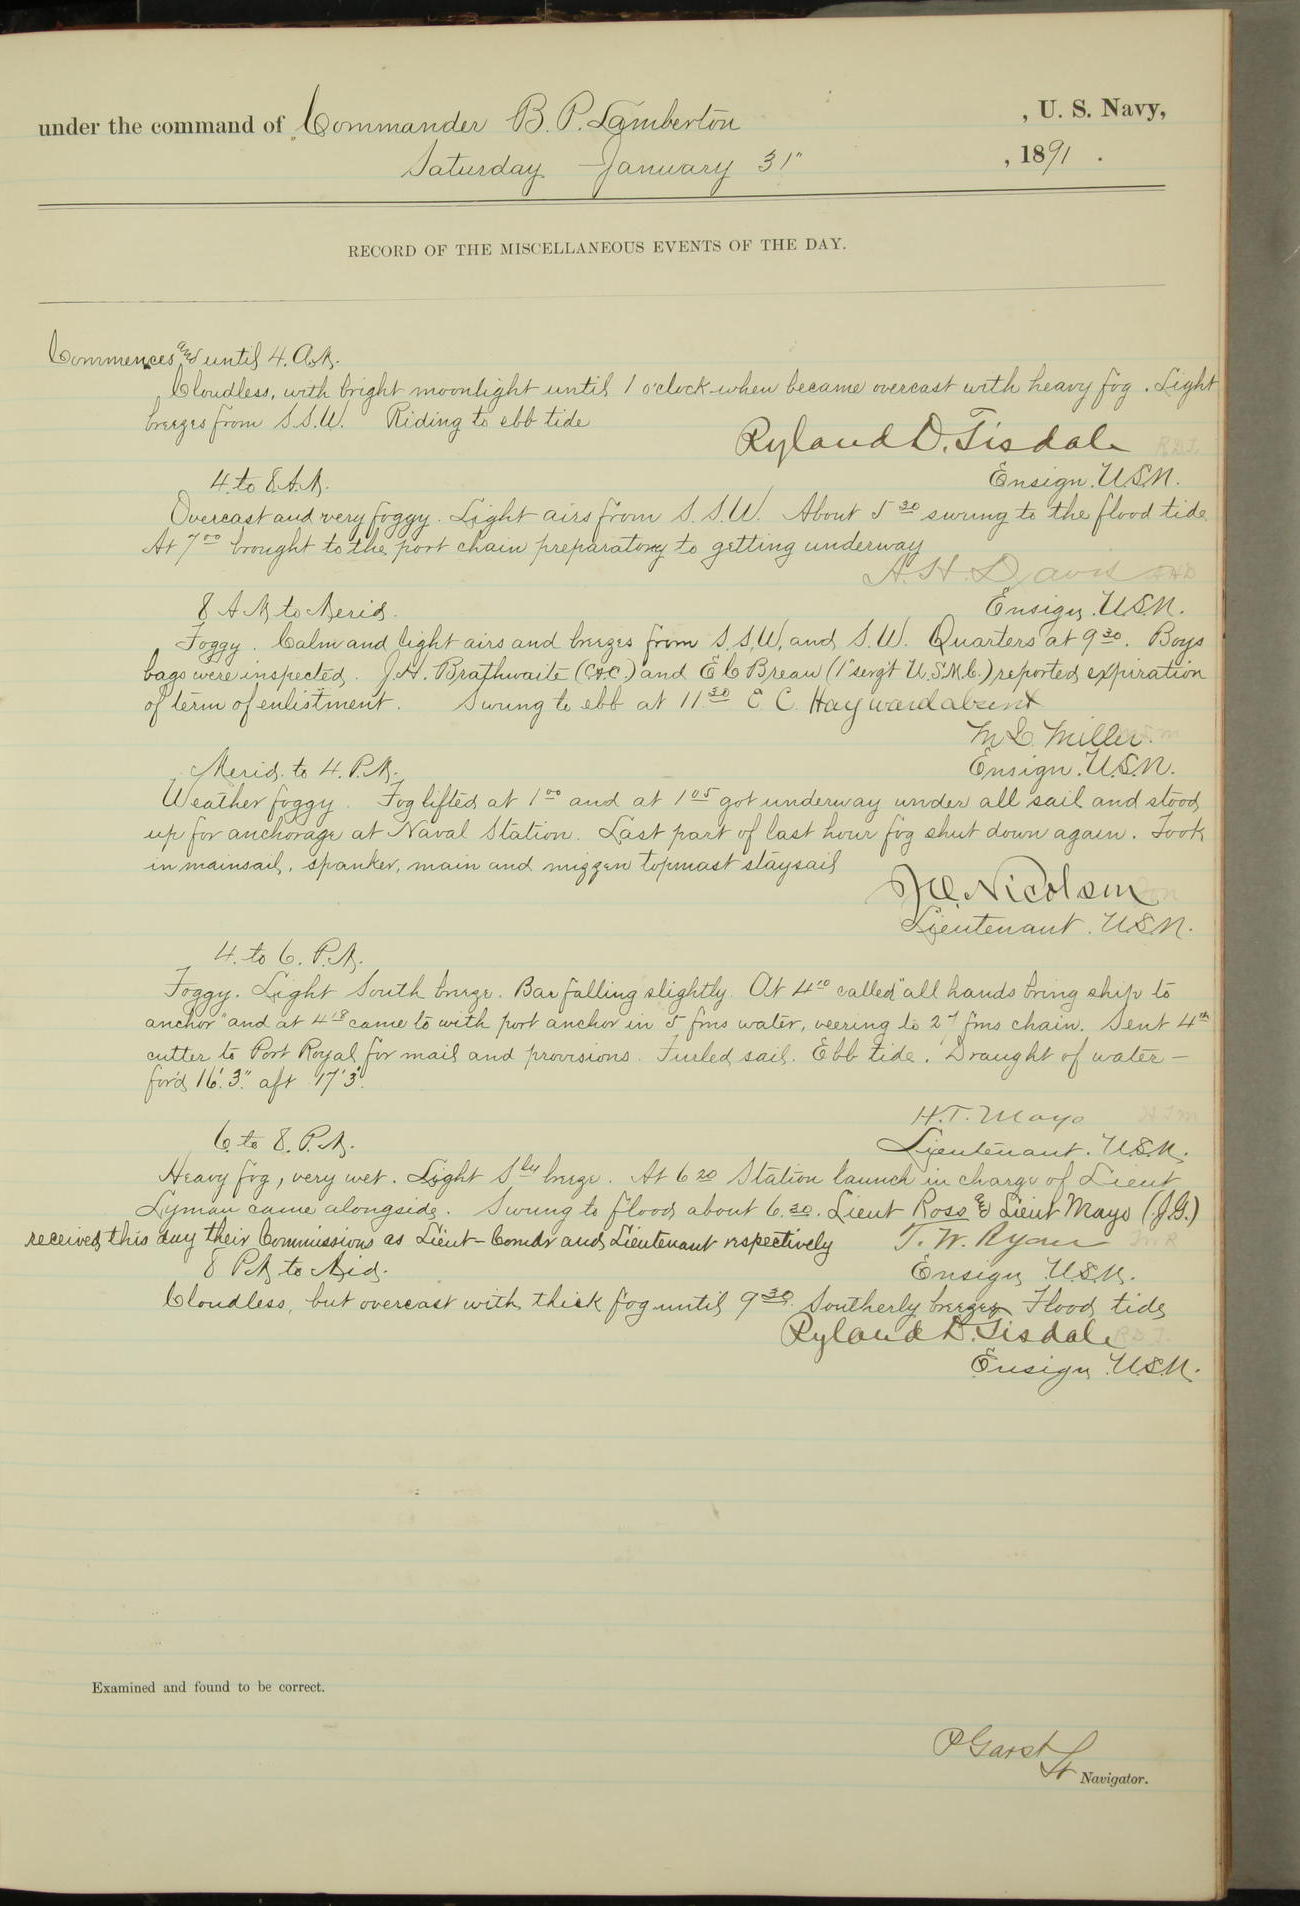 under the command of Commander B. P. Lamberton, U. S. Navy,
Saturday January 31", 1891.
RECORD OF THE MISCELLANEOUS EVENTS OF THE DAY.
Commences and until 4. A.M.
Cloudless, with bright moonlight until 1 o'clock when became overcast with heavy fog. Light
breezes from S.S.W. Riding to ebb tide
Ryland D. Tisdale
Ensign. U.S.N.
4. to 8. A.M.
Overcast and very foggy. Light airs from S.S.W. About 5 30 swung to the flood tide
At 7 00 brought to the port chain preparatory to getting underway
A. H. Davis
Ensign, U.S.N.
8 A.M to Merid.
Foggy. Calm and light airs and breezes from S.S.W, and S.W. Quarters at 9 30. Boys
bags were inspected. J.H. Brathwaite and E C Breau (1" serg't U.S.M.C.) reported expiration
of term of enlistment. Swung to ebb at 11 30 E. C. Hayward absent
M L Miller.
Ensign. U.S.N.
Merid. to 4. P.M.
Weather foggy. Fog lifted at 1 00 and at 1 05 got underway under all sail and stood
up for anchorage at Naval Station. Last part of last hour fog shut down again. Took
in mainsail, spanker, main and mizzen topmast staysail
Nicolson
Lieutenant. U.S.N.
4. to 6. P.M.
Foggy. Light South breeze. Bar falling slightly. At 4 10 called "all hands bring ship to
anchor" and at 4 18 came to with port anchor in 5 fms water, veering to 27 fms chain. Sent 4th
cutter to Port Royal for mail and provisions. Furled sail. Ebb tide. Draught of water -
for'd 16'. 3." aft 17' 3".
H. T. Mayo
Lieutenant. U.S.N.
6 to 8. P.M.
Heavy fog, very wet. Light Sly breeze. At 6 20 Station launch in charge of Lieut
Lyman came alongside. Swung to flood about 6.30. Lieut Ross & Lieut Mayo (J.G.)
received this day their Commissions as Lieut-Comdr and Lieutenant respectively
T. W. Ryan
Ensign U.S.N.
8 P.M to Mid.
Cloudless, but overcast with thick fog until 9 30. Southerly breezes Flood tide
Ryland D. Tisdale
Ensign U.S.N.
Examined and found to be correct.
P Garst
Lt Navigator.